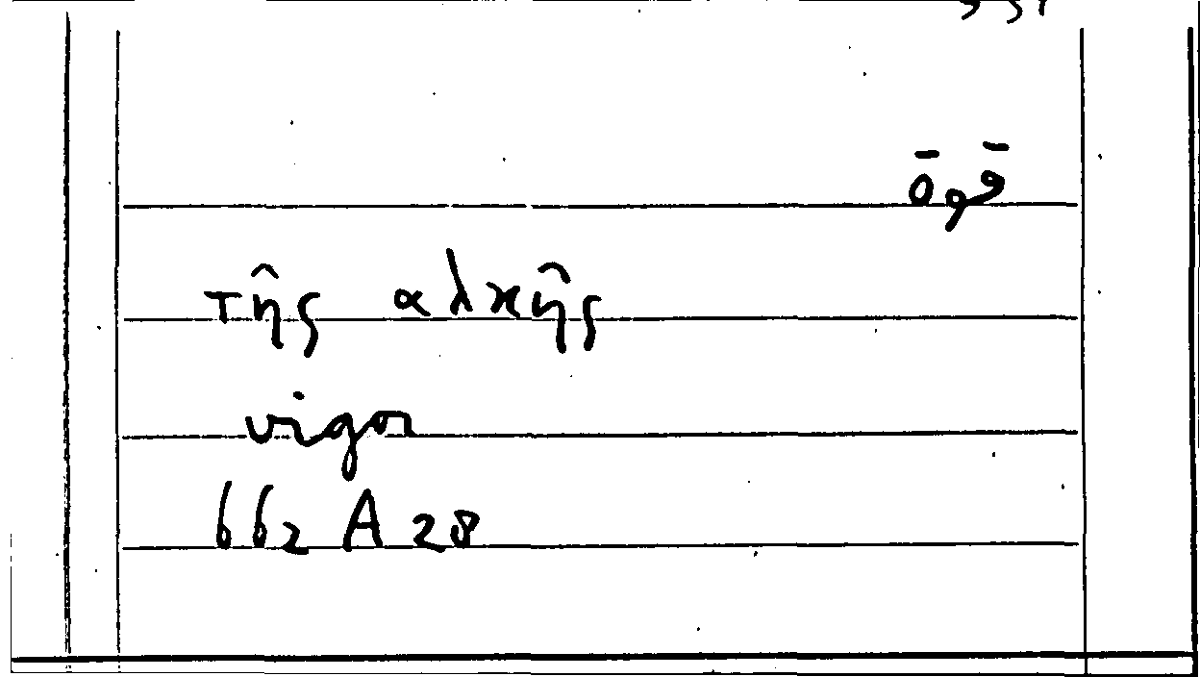 τῆς αλκῆς
vigor
662 A 28